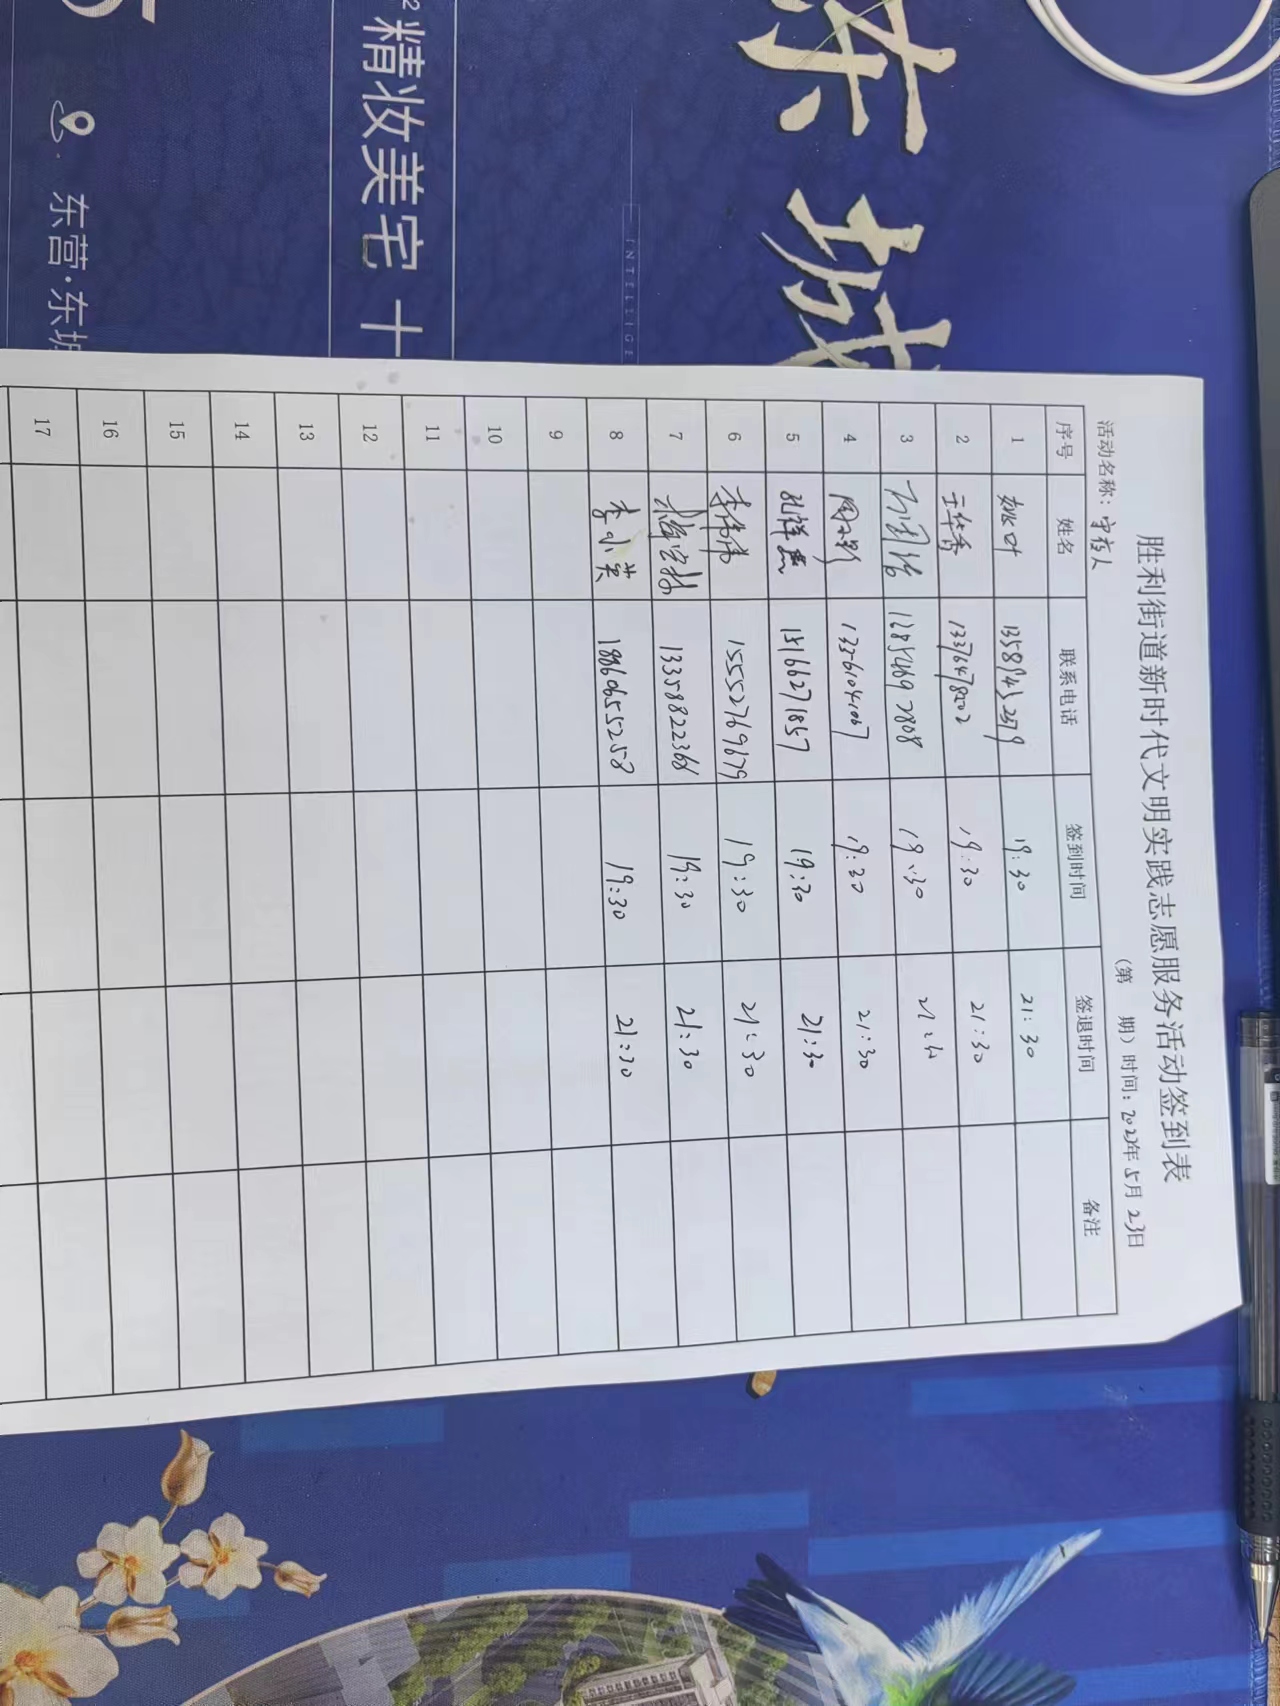 东城
INTELLIGE
²精妆美宅 十
东营·东城
胜利街道新时代文明实践志愿服务活动签到表
(第 期) 时间: 2023年5月23日
活动名称: 守夜人
序号 姓名 联系电话 签到时间 签退时间 备注
1 姚叶 19:30 21:30
2 王华秀 13376478202 19:30 21:30
3 19:30
4 13356104067 19:30 21:30
5 孔祥燕 15166271857 19:30 21:30
6 李伟伟 15552769679 19:30 21:30
7 13358822368 19:30 21:30
8 李小英 18860655258 19:30 21:30
9
10
11
12
13
14
15
16
17